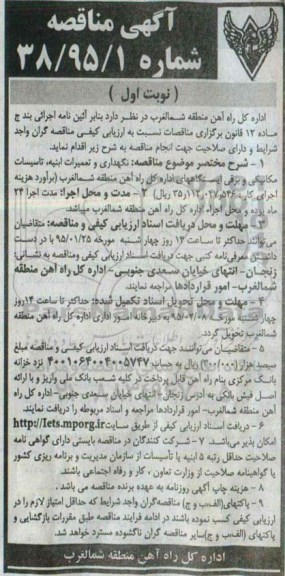 آگهی مناقصه
شماره ۳۸/۹۵/۱
( نوبت اول )
اداره کل راه آهن منطقه شمالغرب در نظر دارد بنابر آئین نامه اجرائی بند ج
ماده ۱۲ قانون برگزاری مناقصات نسبت به ارزیابی کیفی مناقصه گران واجد
شرایط و دارای صلاحیت جهت انجام مناقصه به شرح زیر اقدام نماید.
۱ - شرح مختصر موضوع مناقصه: نگهداری و تعمیرات ابنیه، تاسیسات
مکانیکی و برقی ایستگاههای اداره کل راه آهن شمالغرب (برآورد هزینه
اجرای کار: ریال) ۲ - مدت و محل اجرا: مدت اجرا ۲۴
ماه بوده و محل اجراء اداره کل راه آهن منطقه شمالغرب میباشد.
۳ - مهلت و محل دریافت اسناد ارزیابی کیفی و مناقصه: متقاضیان
می‌توانند حداکثر تا ساعت ۱۴ روز چهار شنبه مورخه ۹۵/۰۱/۲۵ با در دست
داشتن معرفی‌نامه کتبی جهت دریافت اسناد ارزیابی کیفی ومناقصه به نشانی:
زنجان - انتهای خیابان سعدی جنوبی - اداره کل راه آهن منطقه
شمالغرب - امور قراردادها مراجعه نمایند.
۴ - مهلت و محل تحویل اسناد تکمیل شده: حداکثر تا ساعت ۱۴ روز
چهارشنبه مورخه ۹۵/۰۲/۰۸ به دبیرخانه امور اداری اداره کل راه آهن منطقه
شمالغرب تحویل گردد.
۵ - متقاضیان می توانند جهت دریافت اسناد ارزیابی کیفی و مناقصه مبلغ
سیصد هزار (۳۰۰/۰۰۰) ریال به حساب ۴۰۰۱۰۶۴۰۰۴۰۰۵۷۴۷ نزد خزانه
بانک مرکزی بنام راه آهن قابل پرداخت در کلیه شعب بانک ملی واریز و با ارائه
اصل فیش بانکی به آدرس زنجان - انتهای خیابان سعدی جنوبی - اداره کل راه
آهن منطقه شمالغرب - امور قراردادها مراجعه و اسناد مربوطه را دریافت نمایند.
۶ - دریافت اسناد ارزیابی کیفی از طریق سایت http://Iets.mporg.ir
امکان پذیر می‌باشد. ۷ - شرکت کنندگان در مناقصه بایستی دارای گواهی نامه
صلاحیت حداقل رتبه ۵ ابنیه یا تأسیسات از سازمان مدیریت و برنامه ریزی کشور
یا گواهینامه صلاحیت از وزارت تعاون ، کار و رفاه اجتماعی باشند.
۸ - هزینه چاپ آگهی روزنامه به عهده برنده مناقصه می باشد .
۹ - پاکتهای (الف، ب و ج) مناقصه‌گران واجد شرایط که حداقل امتیاز لازم را در
ارزیابی کیفی کسب نموده باشند در ادامه فرایند مناقصه طبق مقررات بازگشایی و
پاکتهای (الف، ب و ج) سایر مناقصه گران ناگشوده مسترد خواهد شد.
اداره کل راه آهن منطقه شمالغرب